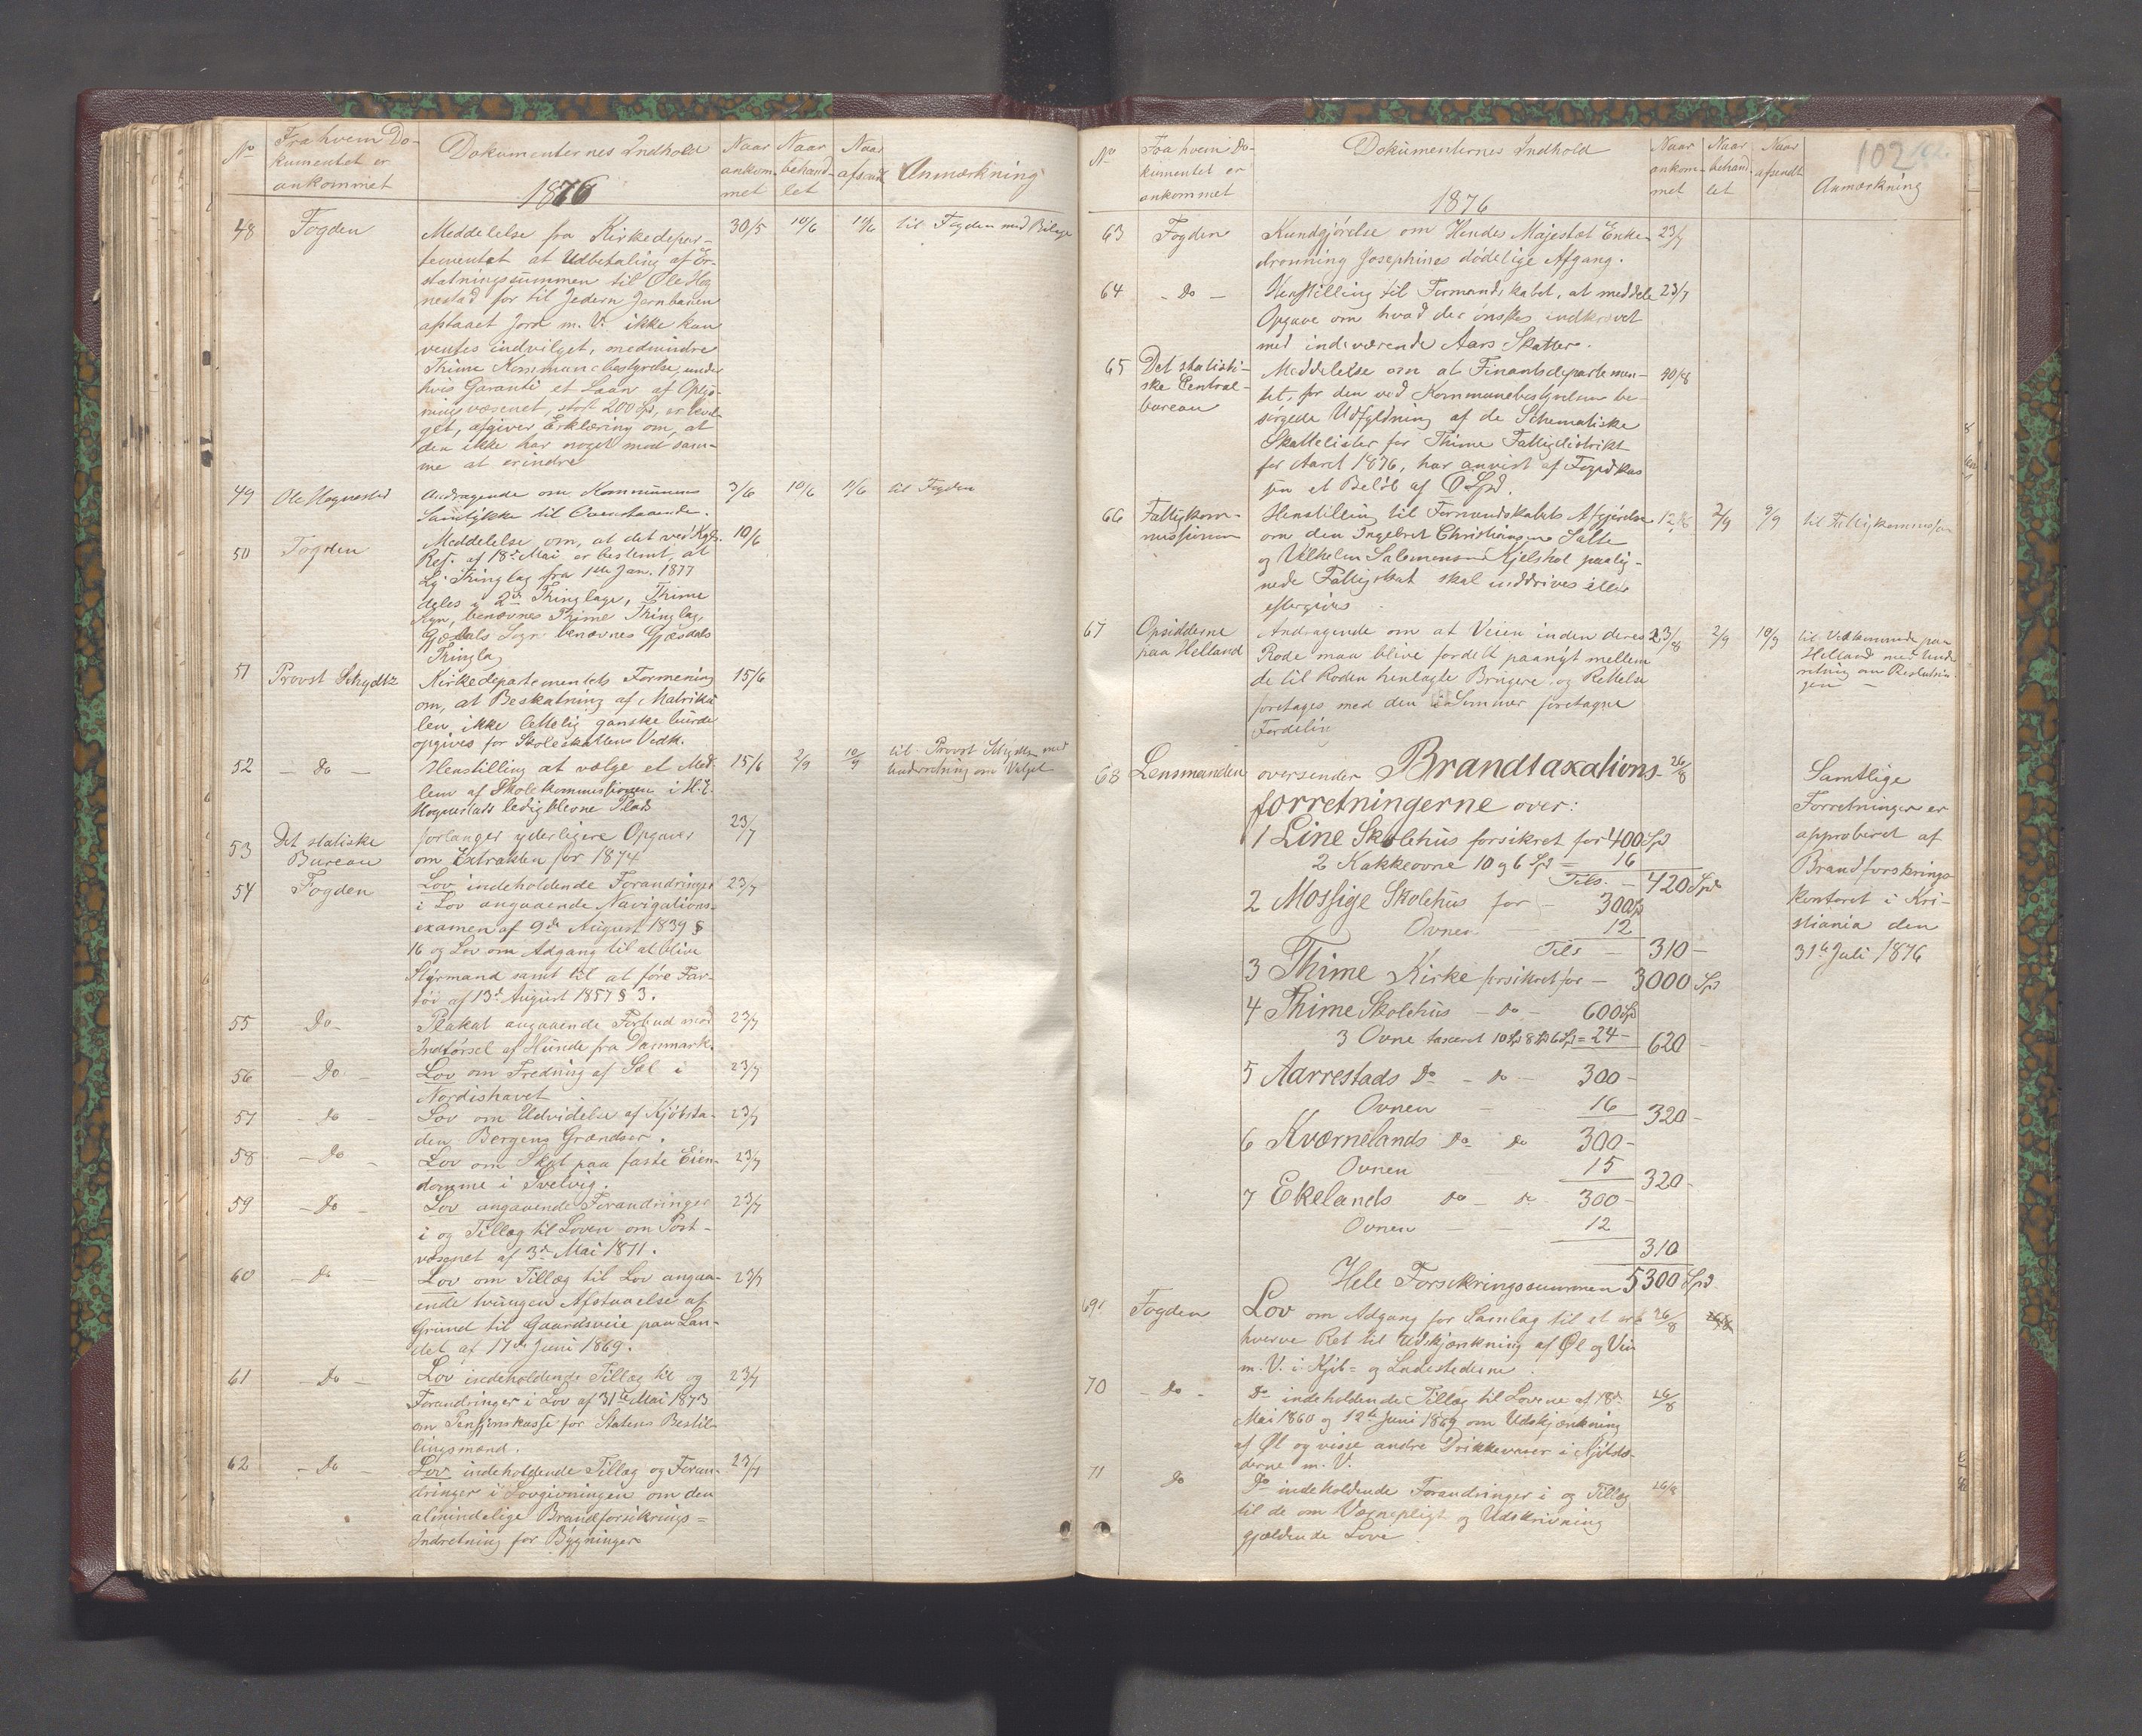 No
Fra hvem Do-
kumentet er
ankommet
Dokumenternes Indhold
1876
Naar
ankom-
met
Naar
behand-
let
Naar
afsendt
Anmærkning
48 Fogden Meddelelse fra Kirkedepar- 30/5 10/6 11/6 til Fogden med Bilage
tementet at Udbetaling af Er-
statningssummen til Ole Hog
nestad for til Jedern Jernbanen
afstaaet Jord m. V. ikke kan
ventes indvilget, medmindre
Thime Kommunebestyrelse, under
hvis Garanti et Laan af Oplys-
ningsvæsenet, stort 200 Spd, er bevil-
get, afgiver Erklæring om, at
den ikke har noget mod sam-
me at erindre
49 Ole Hognestad Andragende om Kommunens 3/6 10/6 11/6 til Fogden
Samtykke til Ovenstaaende.
50 Fogden Meddelelse om, at det ved Kgl. 10/6
Res. af 18de Mai er bestemt, at
Lye Thinglag fra 1ste Jan. 1877
deles i 2de Thinglage, Thime
Sogn, benævnes Thime Thinglag,
Gjesdals Sogn benævnes Gjesdals
Thinglag
51 Provst Schydtz Kirkedepartementets Formening 15/6
om, at Beskatning af Matriku
len ikke lettelig ganske burde
opgives for Skoleskattens Vedk.
52 - Do - Henstilling at vælge et Med- 15/6 2/9 10/9 til Provst Schydtz med
lem af Skolekommissionen i H. E. Underretning om Valget
Hognestads ledigblevne Plads
53 Det statiske forlanger yderligere Opgaver 23/7
Bureau om Extrakten for 1874
54 Fogden Lov indeholdende Forandringer 23/7
i Lov angaaende Navigations-
examen af 9de August 1839 §
16 og Lov om Adgang til at blive
Styrmand samt til at føre Far-
tøi af 13de August 1857 § 3.
55 - Do - Plakat angaaende Forbud mod 23/7
Indførsel af Hunde fra Danmark.
56 - Do - Lov om Fredning af Sæl i 23/7
Nordishavet
57 - Do - Lov om Udvidelse af Kjøbsta- 23/7
den Bergens Grændser.
58 - Do - Lov om Skat paa faste Eien- 23/7
domme i Svelvig.
59 - Do - Lov angaaende Forandringer 23/7
i og Tillæg til Loven om Post-
væsenet af 3de Mai 1871.
60 - Do - Lov om Tillæg til Lov angaa- 23/7
ende tvungen Afstaaelse af
Grund til Gaardsveie paa Lan-
det af 17de Juni 1869.
61 - Do - Lov indeholdende Tillæg til og 23/7
Forandringer i Lov af 31te Mai 1873
om Pensjonskasse for Statens Bestil-
lingsmænd.
62 - Do - Lov indeholdende Tillæg og Foran- 23/7
dringer i Lovgivningen om den
almindelige Brandforsikrings=
Indretning for Bygninger
102
No
Fra hvem Do-
kumentet er
ankommet
Dokumenternes Indhold
1876
Naar
ankom-
met
Naar
behand-
let
Naar
afsendt
Anmærkning
63 Fogden Kundgjørelse om Hendes Majestæt Enke- 23/7
dronning Josephines dødelige Afgang.
64 - Do - Henstilling til Formandskabet, at meddele 23/7
Opgave om hvad der ønskes indkrævet
med indeværende Aars Skatter.
65 Det statisti- Meddelelse om at Finantsdepartemen-
ske Central- tet, for den ved Kommunebestyrelsen be-
bureau sørgede Udfyldning af de Schematiske
Skattelister for Thime Fattigdistrikt
for Aaret 1876, har anvist af Fogedkas
sen et Beløb af Spd.
66 Fattigkom- Henstilling til Formandskabets Afgjørelse 12/8 2/9 9/9 til Fattigkommissionen
missionen om den Ingebret Christiansen Salte
og Vilhelm Salomonsen Kjelshol paalig-
nede Fattigskat skal inddrives eller
eftergives.
67 Opsidderne Andragende om at Veien inden deres 23/8 2/9 10/9 til Vedkommende paa
paa Helland Rode maa blive fordelt paanyt mellem Helland med Unde
de til Roden henlagte Brugere og Rettelse rretning om Resolutio
foretages med den i Sommer foretagne gen
Fordeling
68 Lensmanden oversender Brandtaxations- 26/8 Samtlige
forretningerne over: Forretninger er
1 Line Skolehus forsikret for 400 Spd approberet af
2 Kakkeovne 10 og 6 Spd = 16 Brandforskrings
Tils. - 420 Spd
2 Mossige Skolehus for - 300 Spd kontoret i Kri-
Ovnen - 12 stiania den
Tils - 310 - 31te Juli 1876
3 Thime Kirke forsikret for - 3000 Spd
4 Thime Skolehus - Do - 600 Spd
3 Ovne taxeret 10 Spd 8 Spd 6 Spd = 24 - 620 -
5 Aarrestads Do - Do - 300 -
Ovnen - 16 320 -
6 Kværnelands Do Do 300 -
Ovnen 15 320 -
7 Ekelands Do - Do 300 -
Ovnen - - 12
310
Hele Forsikringssummen 5300 Spd.
69 Fogden Lov om Adgang for Samlag til at er- 26/8
hverve Ret til Udskjænkning af Øl og Vin
m. V. i Kjøb= og Ladestederne.
70 - Do - Do indeholdende Tillæg til Lovene af 18de 26/8
Mai 1860 og 12te Juni 1869 om Udskjænkning
af Øl og visse andre Drikkevarer i Kjøbstæ-
derne m. V.
71 Do Do indeholdende Forandringer i og Tillæg 26/8
til de om Værnepligt og Udskrivning
gjældende Love